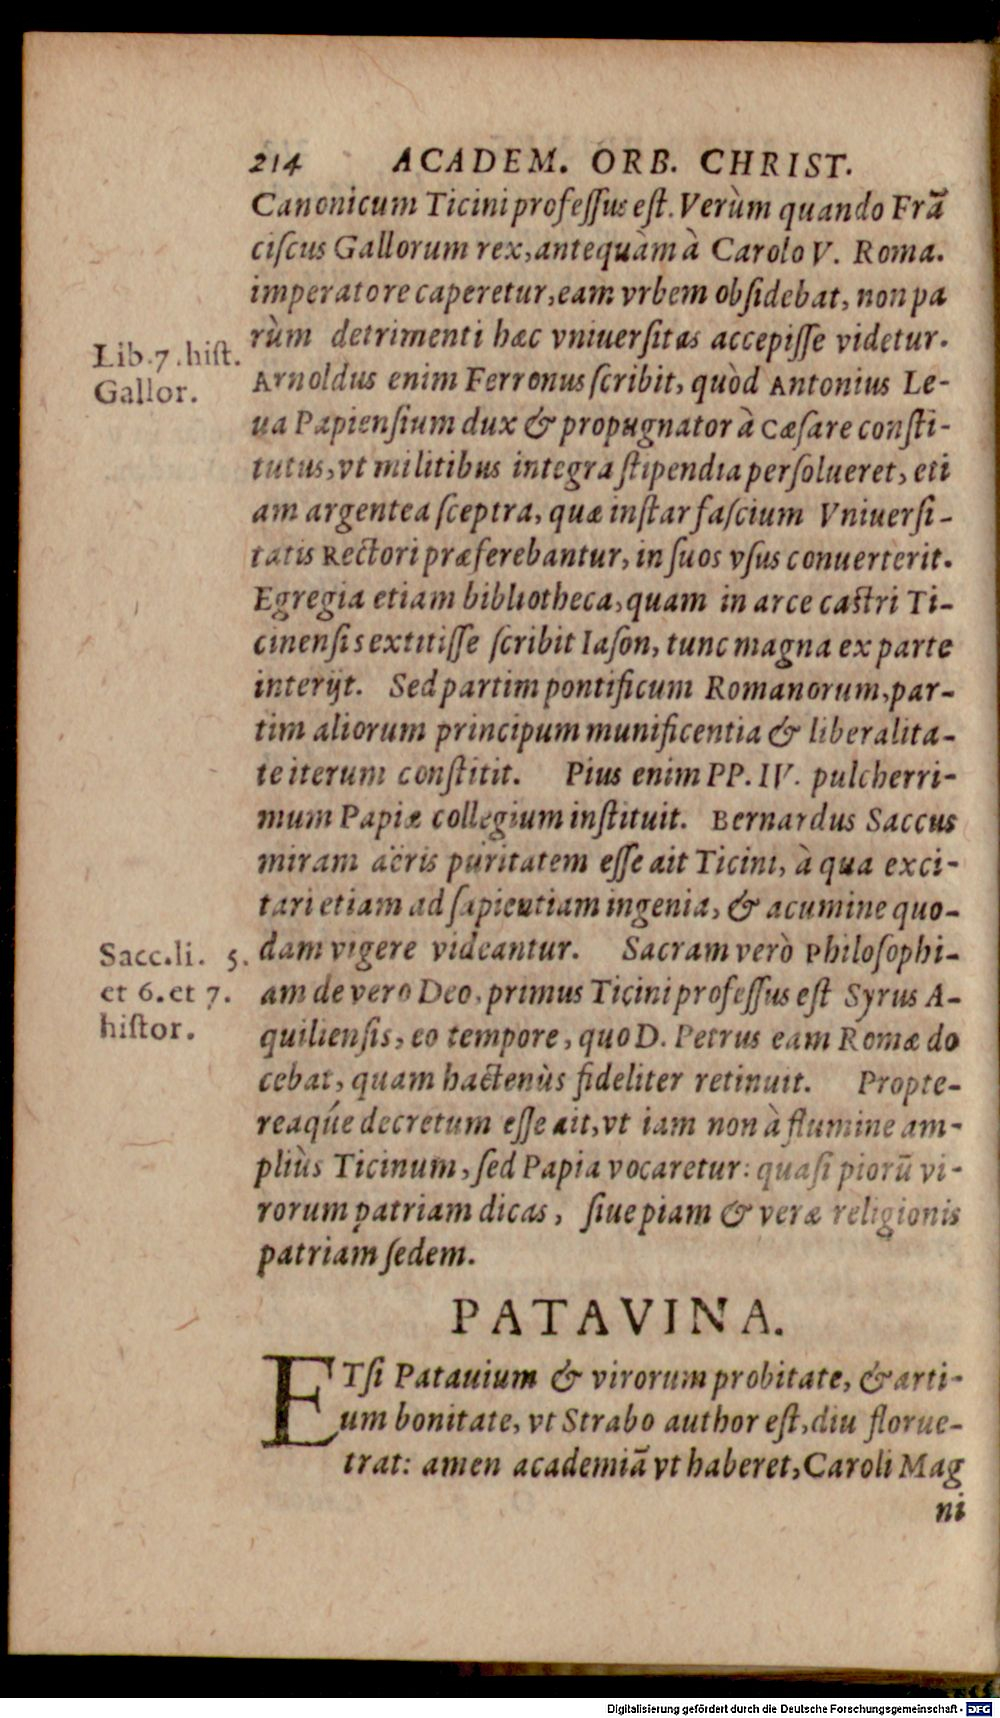 214 ACADEM. ORB. CHRIST.
Canonicum Ticini professus est. Verùm quando Frā
ciscus Gallorum rex, antequàm à Carolo V. Roma.
imperatore caperetur, eam vrbem obsidebat, non pa
rùm detrimenti hæc vniuersitas accepisse videtur.
Lib. 7. hist.
Gallor.
Arnoldus enim Ferronus scribit, quòd Antonius Le-
ua Papiensium dux & propugnator à Cæsare consti-
tutus, vt militibus integra stipendia persolueret, eti
am argentea sceptra, quæ instar fascium Vniuersi-
tatis Rectori præferebantur, in suos vsus conuerterit.
Egregia etiam bibliotheca, quam in arce castri Ti-
cinensis extitisse scribit Iason, tunc magna ex parte
interijt. Sed partim pontificum Romanorum, par-
tim aliorum principum munificentia & liberalita-
te iterum constitit. Pius enim PP. IV. pulcherri-
mum Papiæ collegium instituit. Bernardus Saccus
miram aëris puritatem esse ait Ticini, à qua exci-
tari etiam ad sapieutiam ingenia, & acumine quo-
dam vigere videantur. Sacram verò Philosophi-
Sacc. li. 5.
et 6. et 7.
histor.
am de vero Deo, primus Ticini professus est Syrus A-
quiliensis, eo tempore, quo D. Petrus eam Romæ do
cebat, quam hactenùs fideliter retinuit. Propte-
reaq́ue decretum esse ait, vt iam non à flumine am-
pliùs Ticinum, sed Papia vocaretur: quasi piorū vi-
rorum patriam dicas, siue piam & veræ religionis
patriam sedem.
PATAVINA.
ETsi Patauium & virorum probitate, & arti-
um bonitate, vt Strabo author est, diu florue-
trat: amen academiā vt haberet, Caroli Mag
ni
Digitalisierung gefördert durch die Deutsche Forschungsgemeinschaft - DFG